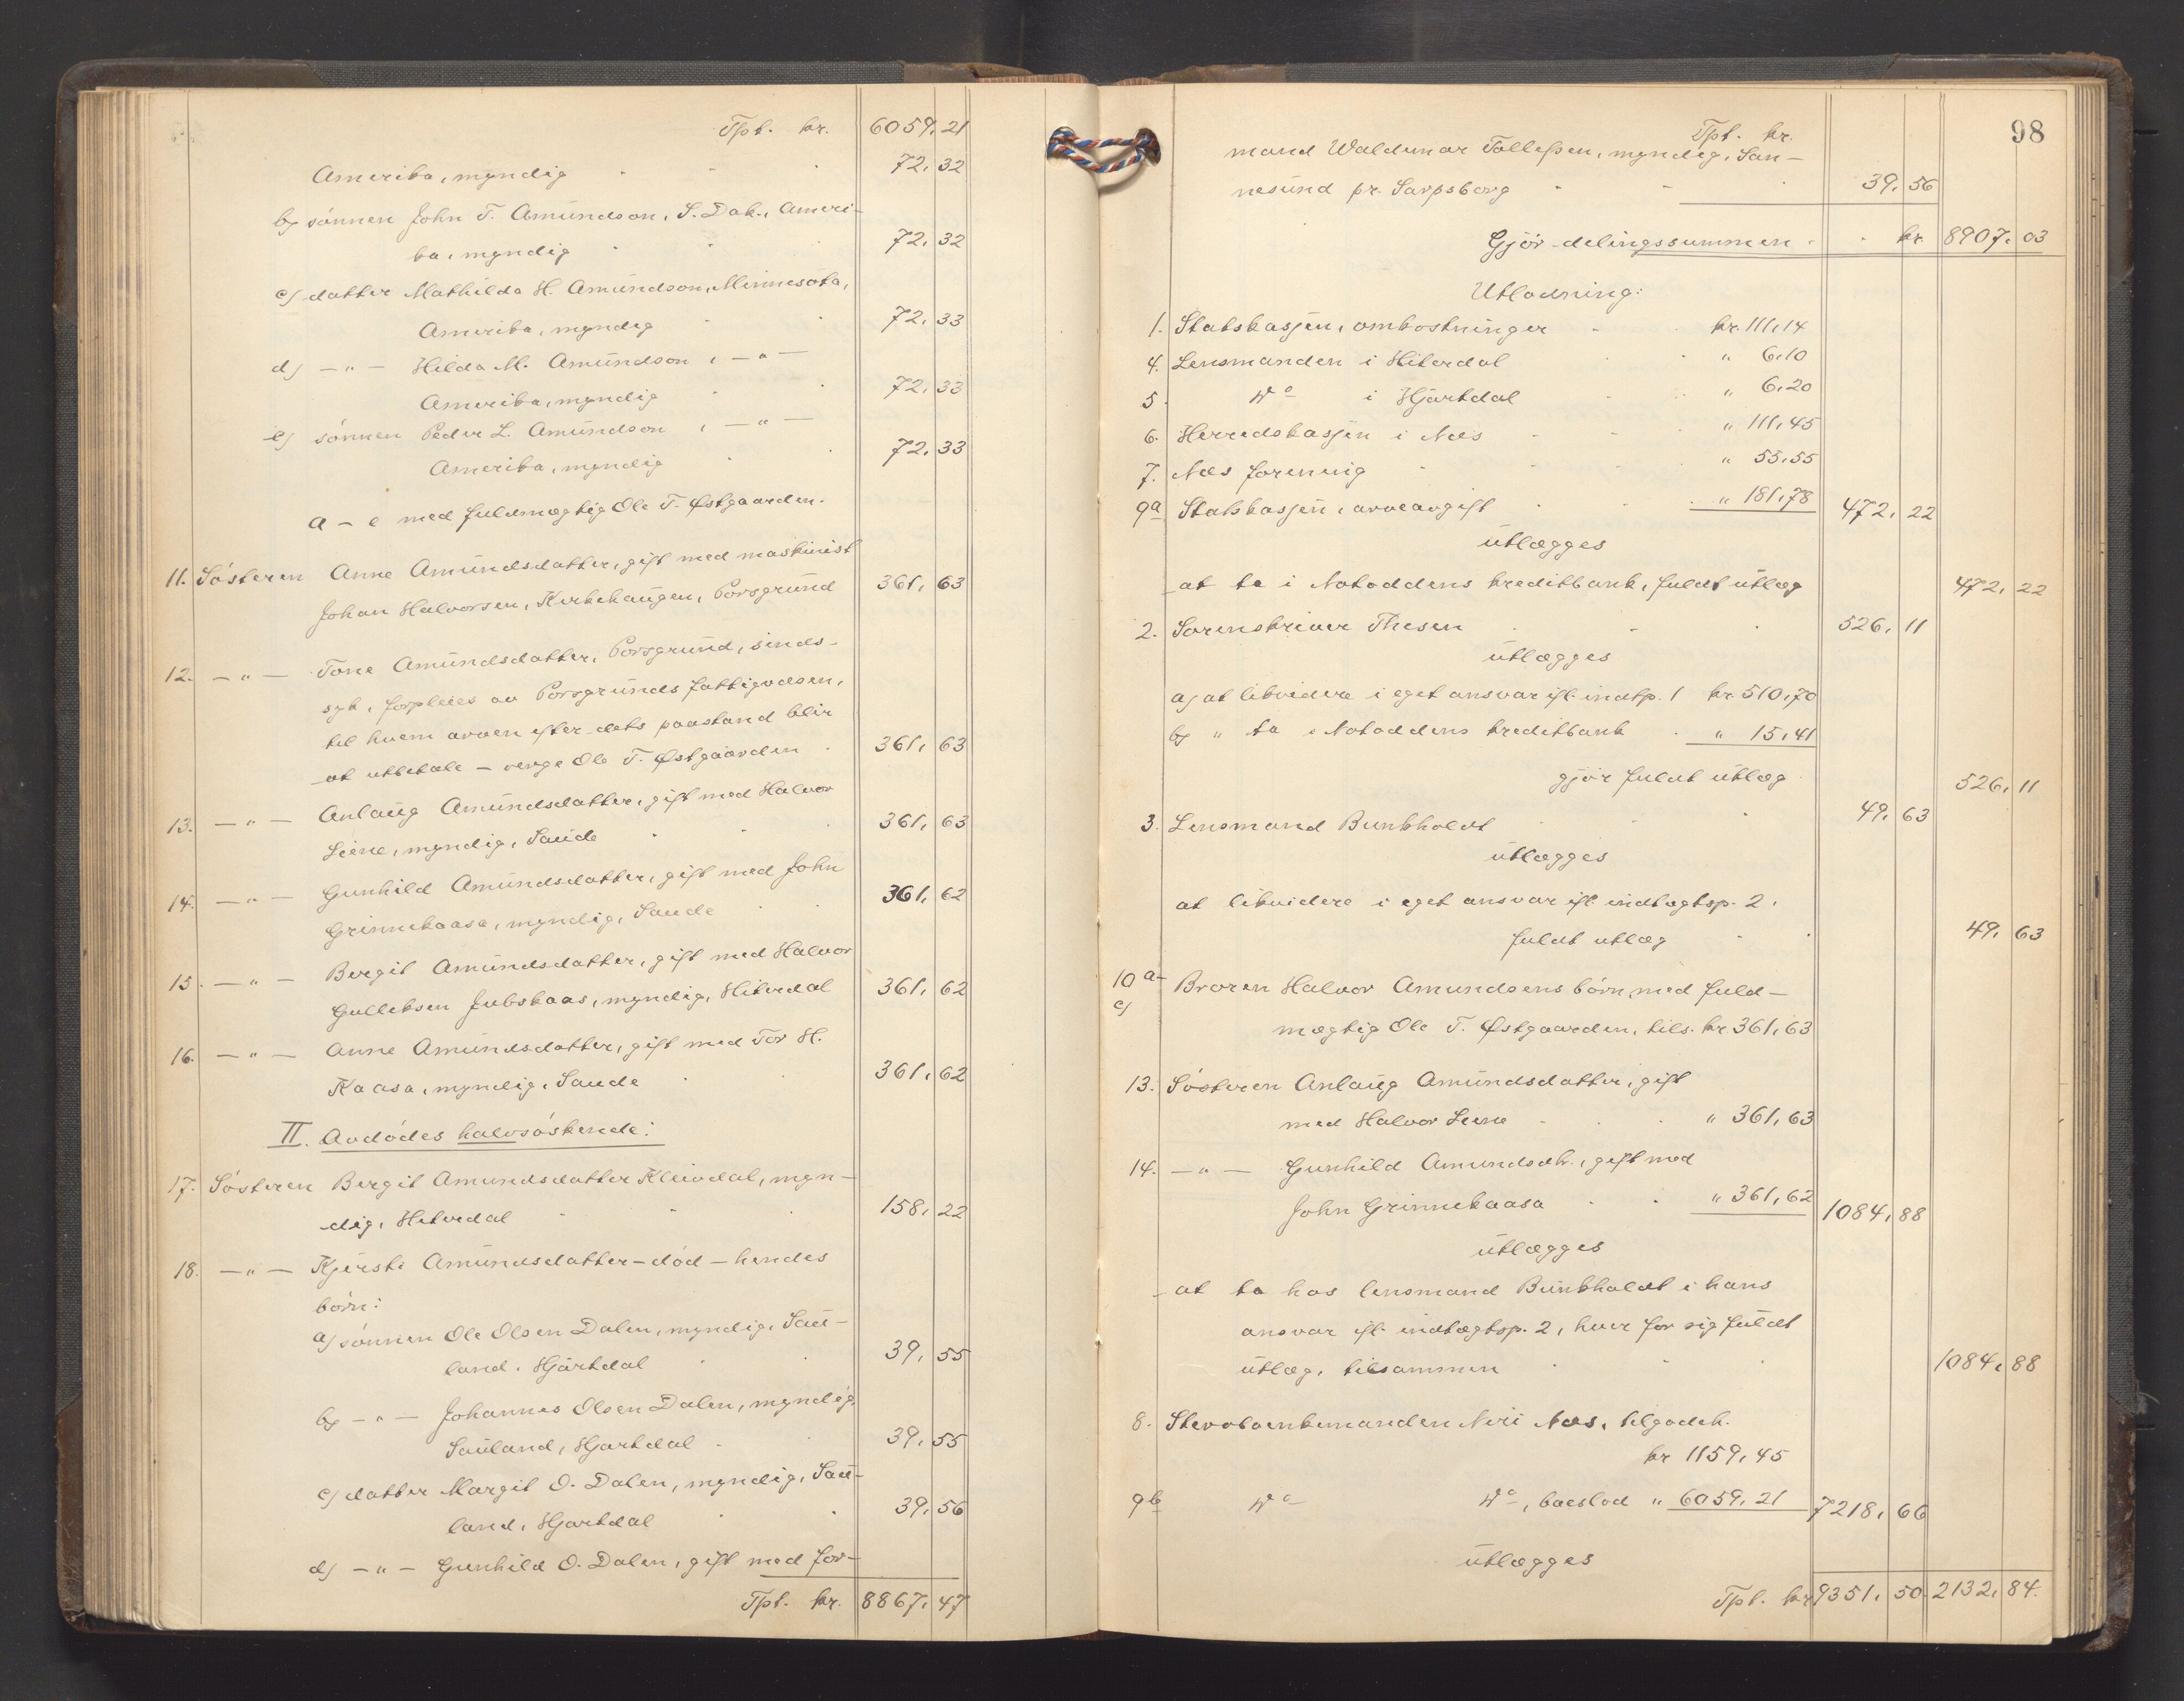 Tpt. kr. 6059, 21
Amerika, myndig 72, 32
b) sønnen John T. Amundson, S. Dak., Ameri-
ka, myndig 72, 32
c) datter Mathilda H. Amundson, Minnesota,
Amerika, myndig 72, 33
d) —"— Hilda M. Amundson, —"—
Amerika, myndig 72, 33
e) sønnen Peder L. Amundson, —"—
Amerika, myndig 72, 33
a – e med fuldmægtig Ole T. Østgaarden.
11. Søsteren Anne Amundsdatter, gift med maskinist
Johan Halvorsen, Kirkehaugen, Porsgrund 361, 63
12. —"— Tone Amundsdatter, Porsgrund, sinds-
syk, forpleies av Porsgrunds fattigvæsen,
til hvem arven efter dets paastand blir
at utbetale – verge Ole T. Østgaarden 361, 63
13. —"— Anlaug Amundsdatter, gift med Halvor
Leine, myndig, Saude 361, 63
14. —"— Gunhild Amundsdatter, gift med John
Grinnekaasa, myndig, Saude 361, 62
15. —"— Bergit Amundsdatter, gift med Halvor
Gulleksen Jubskaas, myndig, Hiterdal 361, 62
16. —"— Anne Amundsdatter, gift med Tor H.
Kaasa, myndig, Saude 361, 62
II. Avdødes halvsøskende:
17. Søsteren Bergit Amundsdatter Kleivdal, myn-
dig, Hiterdal 158, 22
18. —"— Kjersti Amundsdatter – død – hendes
børn:
a) sønnen Ole Olsen Dalen, myndig, Sau-
land, Hjartdal 39, 55
b) —"— Johannes Olsen Dalen, myndig,
Sauland, Hjartdal 39, 55
c) datter Margit O. Dalen, myndig, Sau-
land, Hjartdal 39, 56
d) —"— Gunhild O. Dalen, gift med for-
Tpt. kr. 8867, 47
98
Tpt. kr.
mand Waldemar Tollefsen, myndig, San-
nesund pr. Sarpsborg 39, 56
Gjør delingssummen kr. 8907, 03
Utlodning:
1. Statskassen, omkostninger kr. 111,14
4. Lensmanden i Hiterdal " 6,10
5. Do i Hjartdal " 6,20
6. Herredskassen i Næs " 111,45
7. Næs forening " 55,55
9a Statskassen, arveavgift " 181,78 472, 22
utlægges
at ta i Notoddens kreditbank, fuldt utlæg 472, 22
2. Sorenskriver Thesen 526, 11
utlægges
a) at likvidere i eget ansvar ifl. indtp. 1 kr. 510,70
b) " ta i Notoddens kreditbank " 15,41
gjør fuldt utlæg 526, 11
3. Lensmand Bunkholdt 49, 63
utlægges
at likvidere i eget ansvar ifl. indtægtsp. 2,
fuldt utlæg 49, 63
10 a-
e) Broren Halvor Amundsens børn, med fuld-
mægtig Ole T. Østgaarden, tils. kr. 361,63
13. Søsteren Anlaug Amundsdatter, gift
med Halvor Leine " 361,63
14. —"— Gunhild Amundsdtr., gift med
John Grinnekaasa " 361,62 1084, 88
utlægges
at ta hos lensmand Bunkholdt i hans
ansvar ifl. indtægtsp. 2, hver for sig fuldt
utlæg, tilsammen 1084, 88
8. Stervboenkemanden Neri Næs, tilgodeh.
kr 1159,45
9b Do Do, boeslod " 6059,21 7218, 66
utlægges
Tpt. kr 9351, 50 2132, 84.